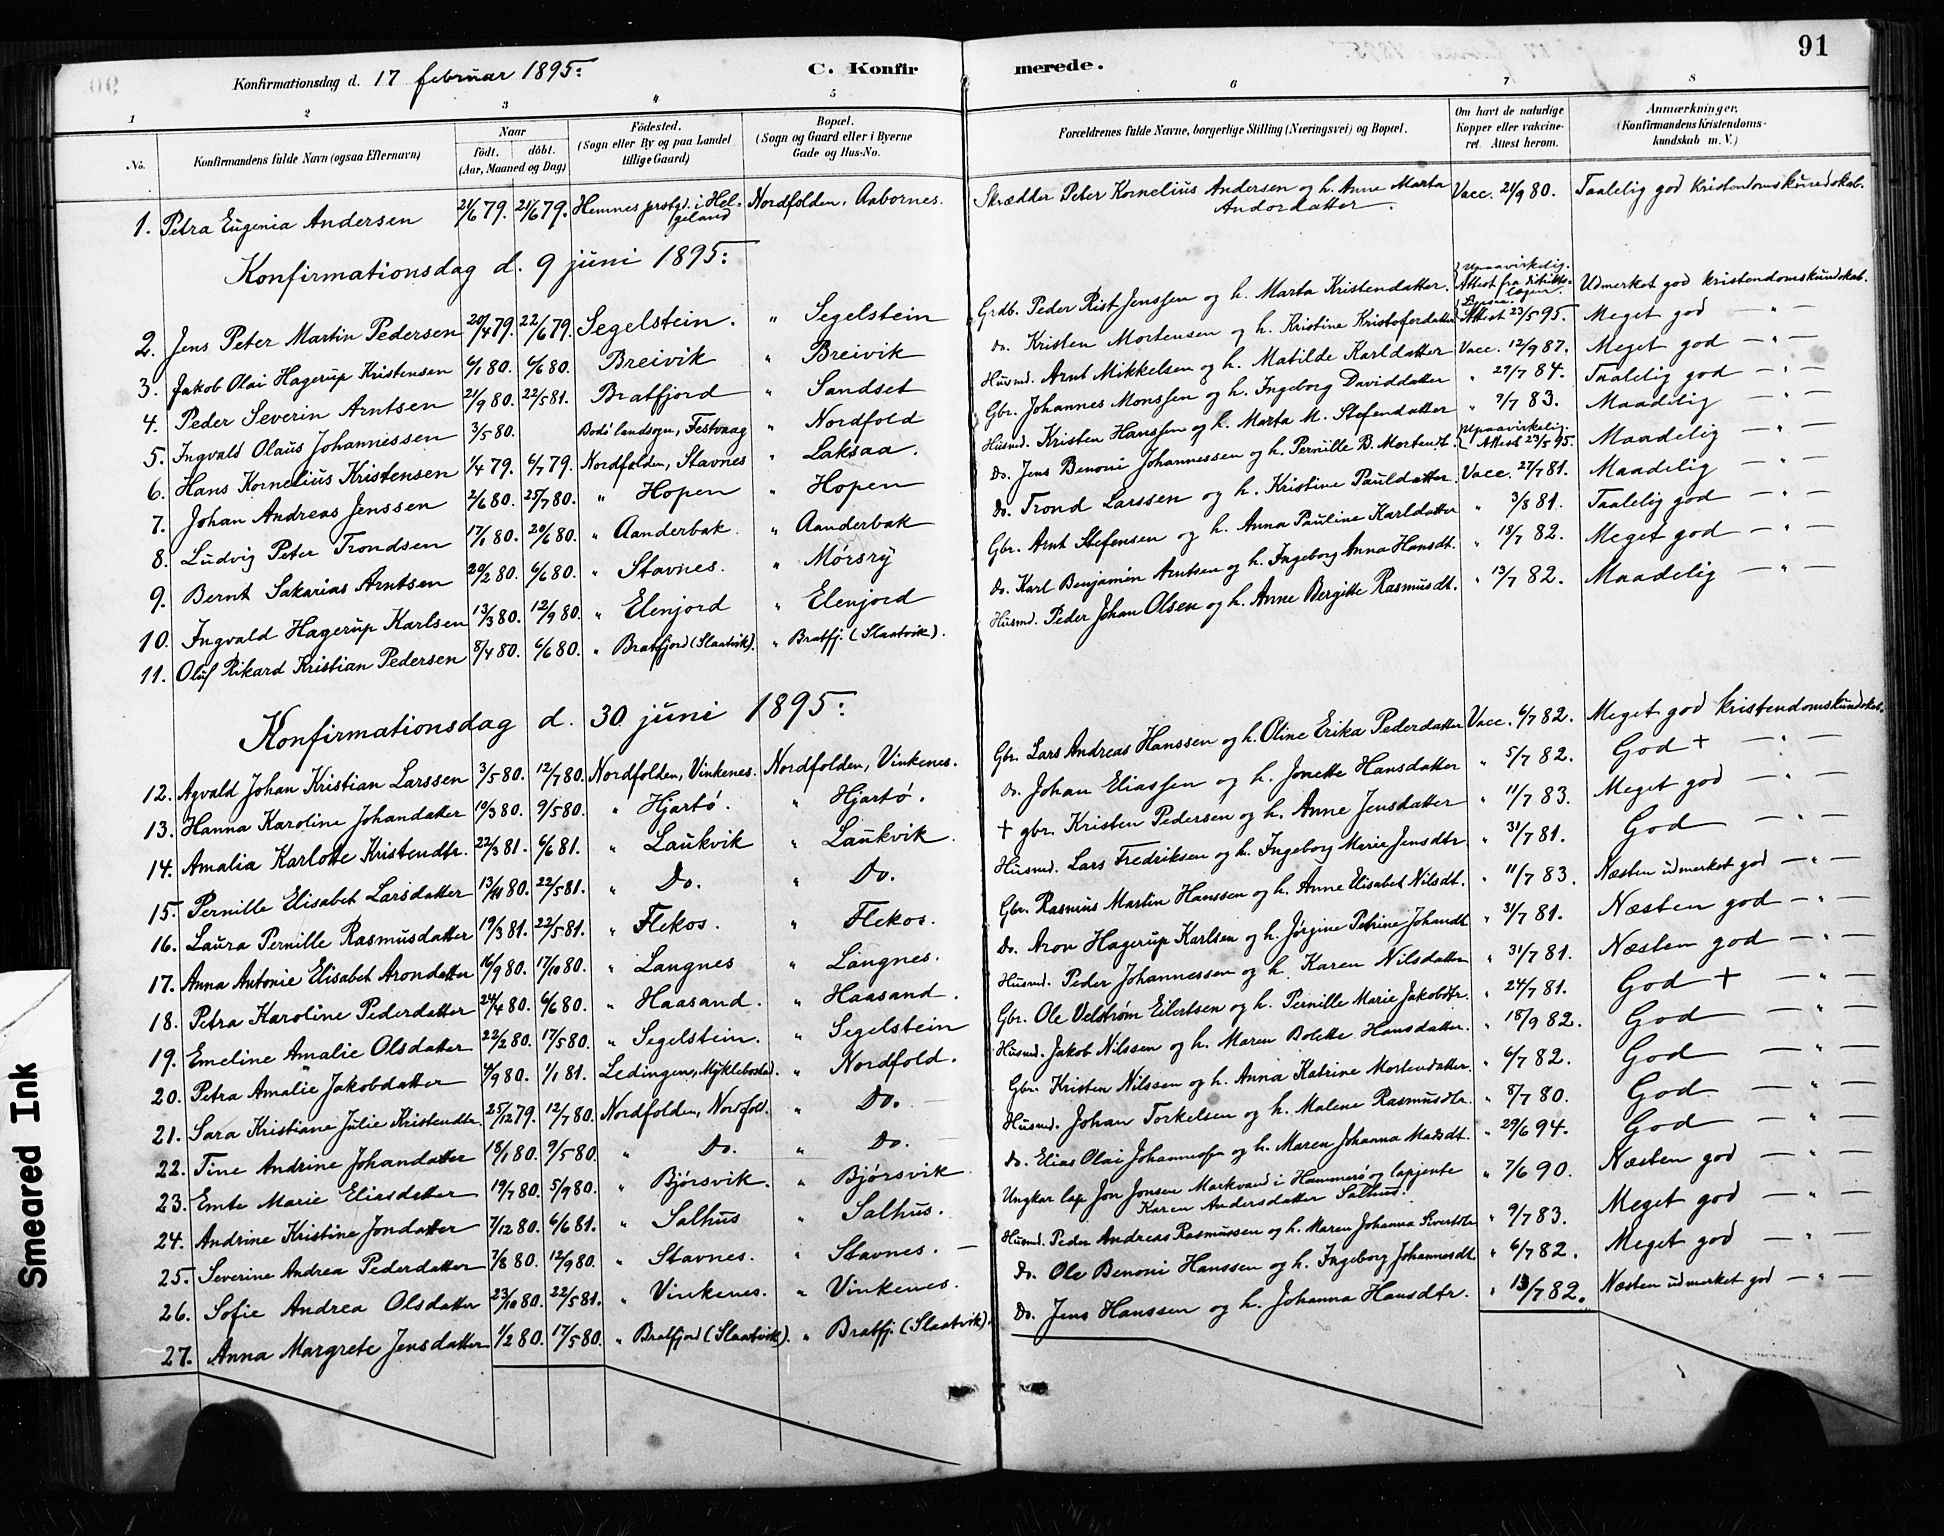 91
Konfirmationsdag d. 17 februar 1895:
C. Konfirmerede.
1 2 3 4 5 6 7 8
No. | Konfirmandens fulde Navn (ogsaa Efternavn) | Naar født. døbt. (Aar, Maaned og Dag) | Fødested. (Sogn eller By og paa Landet tillige Gaard) | Bopæl. (Sogn og Gaard eller i Byerne Gade og Hus-No. | Forældrenes fulde Navne, borgerlige Stilling (Næringsvei) og Bopæl. | Om havt de naturlige Kopper eller vakcineret. Attest herom. | Anmærkninger. (Konfirmandens Kristendomskundskab m. V.)
1. Petra Eugenia Andersen 21/6 79. 21/6 79. Hemnes prstgd. i Helgeland Nordfolden, Aabornes. Skrædder Peter Kornelius Andersen og h. Anne Marta Andordatter. Vacc. 21/9 80. Taalelig god kristendomskundskab.
Konfirmationsdag d. 9 juni 1895:
2. Jens Peter Martin Pedersen 20/4 79. 22/6 79. Segelstein. " Segelstein Grdb. Peder Rist Jenssen og h. Marta Kristendatter. Upaavirkelig. Attest fra distriktslæger. Udmerket god kristendomskundskab.
3. Jakob Olai Hagerup Kristensen 6/1 80. 6/6 80. Breivik " Breivik Do. Kristen Mortensen og h. Kristine Kristoferdatter Attest 23/5 95. Meget god — " —
4. Peder Severin Arntsen 21/9 80. 22/5 81. Bratfjord " Sandset Husmd. Arnt Mikkelsen og h. Matilde Karldatter Vacc. 12/9 87. Meget god — " —
5. Ingvald Olaus Johannessen 3/5 80. Bodø landsogn, Festvaag " Nordfold Gbr. Johannes Monssen og h. Ingeborg Daviddatter " 29/7 84. Taalelig god — " —
6. Hans Kornelius Kristensen 1/4 79. 6/7 79. Nordfolden, Stavnes " Laksaa. Husmd. Kristen Hanssen og h. Marta M. Stefendatter " 9/7 83. Maadelig — " —
7. Johan Andreas Jenssen 2/6 80. 25/7 80. " Hopen " Hopen Do. Jens Benoni Johannessen og h. Pernille B. Mortensd. Upaavirkelig. Attest 23/5 95. Maadelig — " —
8. Ludvig Peter Trondsen 17/1 80. 20/6 80. " Aanderbak. " Aanderbak Do. Trond Larssen og h. Kristine Pauldatter Vacc. 27/7 81. Maadelig — " —
9. Bernt Sakarias Arntsen 20/2 80. 6/6 80. " Stavnes. " Mørsry Gbr. Arnt Stefensen og h. Anna Pauline Karldatter " 3/8 81. Taalelig god — " —
10. Ingvald Hagerup Karlsen 13/3 80. 12/9 80. " Elenjord " Elenjord Do. Karl Benjamin Arntsen og h. Ingeborg Anna Hansdt. " 18/7 82. Meget god — " —
11. Oluf Rikard Kristian Pedersen 8/4 80. 6/6 80. " Bratfjord (Slaatvik). " Bratfj. (Slaatvik). Husmd. Peder Johan Olsen og h. Anne Bergitte Rasmusdt. " 13/7 82. Maadelig — " —
Konfirmationsdag d. 30 juni 1895:
12. Agvald Johan Kristian Larssen 3/5 80. 12/7 80. Nordfolden, Vinkenes. Nordfolden, Vinkenes. Gbr. Lars Andreas Hanssen og h. Oline Erika Pederdatter Vacc. 6/7 82. Meget god kristendomskundskab.
13. Hanna Karoline Johandatter 10/3 80. 9/5 80. " Hjartø. " Hjartø. Do. Johan Eliassen og h. Jonette Hansdatter " 5/7 82. God + — " —
14. Amalia Karlotte Kristendtr. 22/3 81. 6/6 81. " Laukvik " Laukvik. + gbr. Kristen Pedersen og h. Anne Jensdatter " 11/7 83. Meget god — " —
15. Pernille Elisabet Larsdatter 13/11 80. 22/5 81. " Do. " Do. Husmd. Lars Fredriksen og h. Ingeborg Marie Jensdtr " 31/7 81. God — " —
16. Laura Pernille Rasmusdatter 19/3 81. 22/5 81. " Flekos. " Flekos. Gbr. Rasmus Martin Hanssen og h. Anne Elisabet Nilsdt. " 11/7 83. Næsten udmerket god — " —
17. Anna Antonie Elisabet Arondatter 16/9 80. 17/10 80. " Langnes " Langnes. Do. Aron Hagerup Karlsen og h. Jørgine Petrine Johandt " 31/7 81. Næsten god — " —
18. Petra Karoline Pederdatter 24/4 80. 6/6 80. " Haasand. " Haasand. Husmd. Peder Johannessen og h. Karen Nilsdatter " 31/7 81. Næsten god — " —
19. Emeline Amalie Olsdatter 22/2 80. 17/5 80. " Segelstein. " Segelstein Gbr. Ole Velstrøm Eilertsen og h. Pernille Marie Jakobdtr. " 24/7 81. God + — " —
20. Petra Amalie Jakobdatter 4/9 80. 1/1 81. Ledingen, Myklebostad. " Nordfold. Husmd. Jakob Nilssen og h. Maren Bolette Hansdatter. " 18/9 82. God — " —
21. Sara Kristiane Julie Kristendtr. 25/12 79. 12/7 80. Nordfolden, Nordfold. " Do. Gbr. Kristen Nilssen og h. Anna Katrine Mortendatter. " 6/7 82. God — " —
22. Tine Andrine Johandatter 18/1 80. 9/5 80. " Do. " Do. Husmd. Johan Torkelsen og h. Malene Rasmusdtr. " 8/7 80. God — " —
23. Emte Marie Eliasdatter 19/7 80. 5/9 80. " Bjørsvik. " Bjørsvik Do. Elias Olai Johannessen og h. Maren Johanna Madsdt. " 29/6 94. God — " —
24. Andrine Kristine Jondatter 7/12 80. 6/6 81. " Salhus " Salhus. Ungkar lap Jon Jonsen Markvand i Hammerø og lapjente Karen Andersdatter Salhus. " 7/6 90. Næsten god — " —
25. Severine Andrea Pederdatter 7/8 80. 12/9 80. " Stavnes. " Stavnes. Husmd. Peder Andreas Rasmussen og h. Maren Johanna Sivertdtr " 9/7 83. Meget god — " —
26. Sofie Andrea Olsdatter 23/10 80. 22/5 81. " Vinkenes. " Vinkenes. Do. Ole Benoni Hanssen og h. Ingeborg Johannesdt. " 6/7 82. Meget god — " —
27. Anna Margrete Jensdatter 1/2 80. 17/5 80. " Bratfjord (Slaatvik). " Bratfj. (Slaatvik). Do. Jens Hanssen og h. Johanna Hansdtr. " 13/7 82. Næsten udmerket god — " —
Smeared Ink